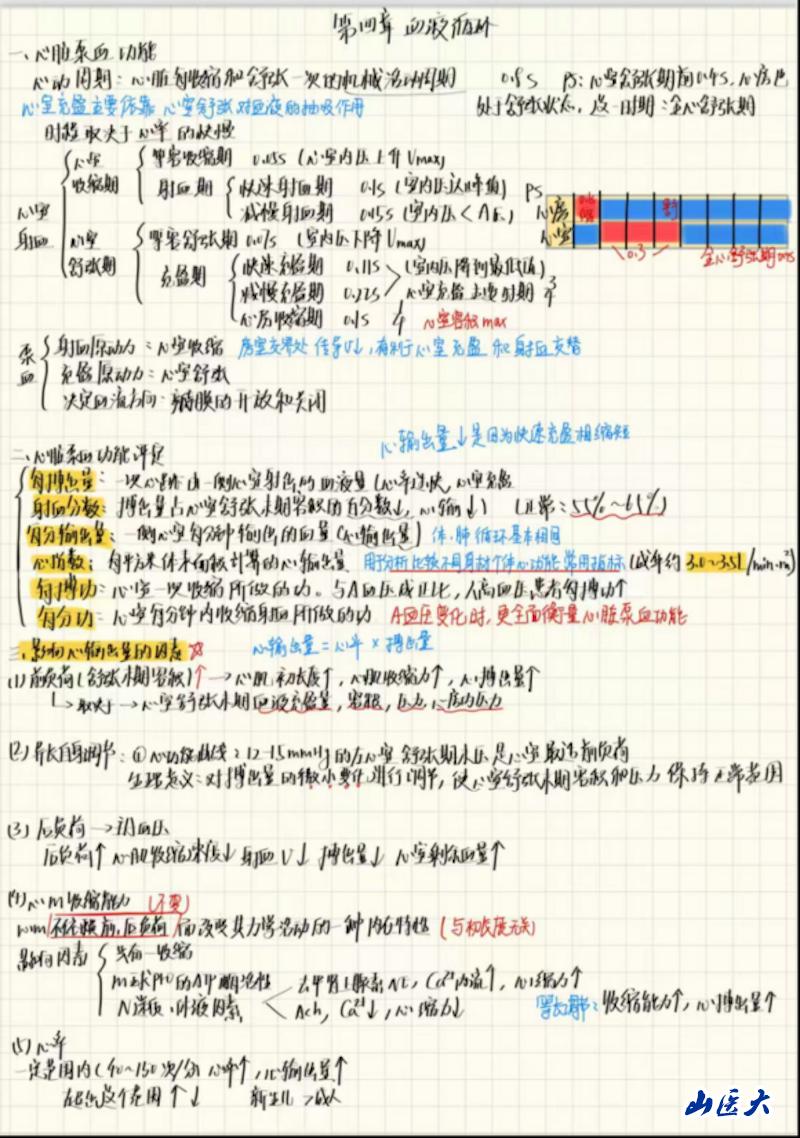 第四章 血液循环
一、心脏泵血功能
心动周期：心脏每收缩和舒张一次的机械活动周期 0.8s PS：心室舒张期前0.4s，心房也
心室充盈主要依靠 心室舒张对血液的抽吸作用 处于舒张状态，这一时期：全心舒张期
时程取决于心率的快慢
心室射血
心室收缩期
等容收缩期 0.05s（心室内压上升Vmax）
射血期
快速射血期 0.1s（室内压达峰值）
减慢射血期 0.15s（室内压<A压）
心室舒张期
等容舒张期 0.07s（室内压下降Vmax）
充盈期
快速充盈期 0.11s（室内压降到最低值）
减慢充盈期 0.22s 心室充盈主要时期 3/4
心房收缩期 0.1s 1/4 心室容积max
PS
心房
心室
0.3
全心舒张期0.4s
泵血
射血原动力：心室收缩 房室交界处 传导V↓，有利于心室充盈和射血交替
充盈原动力：心室舒张
决定血流方向：瓣膜的开放和关闭
心输出量↓是因为快速充盈相缩短
二、心脏泵血功能评定
每搏出量：一次心跳由一侧心室射出的血液量（心率过快，心室充盈
射血分数：搏出量占心室舒张末期容积的百分数↓，心输↓）（正常：55%~65%）
每分输出量：一侧心室每分钟输出的血量（心输出量） 体、肺循环基本相同
心指数：每平方米体表面积计算的心输出量 用于分析比较不同身材个体心功能常用指标（成年约3.0~3.5L/min·m²）
每搏功：心室一次收缩所做的功。与A血压成正比，高血压患者每搏功↑
每分功：心室每分钟内收缩射血所做的功 A血压变化时，更全面衡量心脏泵血功能
三、影响心输出量的因素 心输出量=心率×搏出量
(1)前负荷（舒张末期容积）↑→心肌初长度↑，心肌收缩力↑，心搏出量↑
取决于→心室舒张末期血液充盈量，容积，压力，心房内压力
(2)异长自身调节：①心功能曲线：12-15mmHg的左心室舒张期末压是心室最适前负荷
生理意义：对搏出量的微小变化进行调节，使心室舒张末期容积和压力保持正常范围
(3)后负荷→主A血压
后负荷↑ 心肌收缩速度↓射血V↓ 搏出量↓ 心室剩余血量↑
(4)心m收缩能力（不变）
心m不依赖前、后负荷而改变其力学活动的一种内在特性（与初长度无关）
影响因素
兴奋-收缩
ATP酶活性
N递质、体液因素
去甲肾上腺素NE，Ca²⁺内流↑，心缩力↑
Ach，Ca²⁺↓，心缩力↓
等长调节：收缩能力↑，心搏出量↑
(5)心率
一定范围内（40~150次/分）心率↑，心输出量↑
在超出这个范围↑↓ 新生儿>成人
山医大